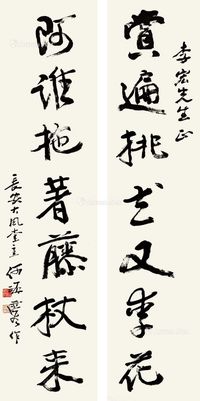 李宏先生正
賞遍桃花又李花
阿誰拖著藤杖来
長安大風堂主何海霞作